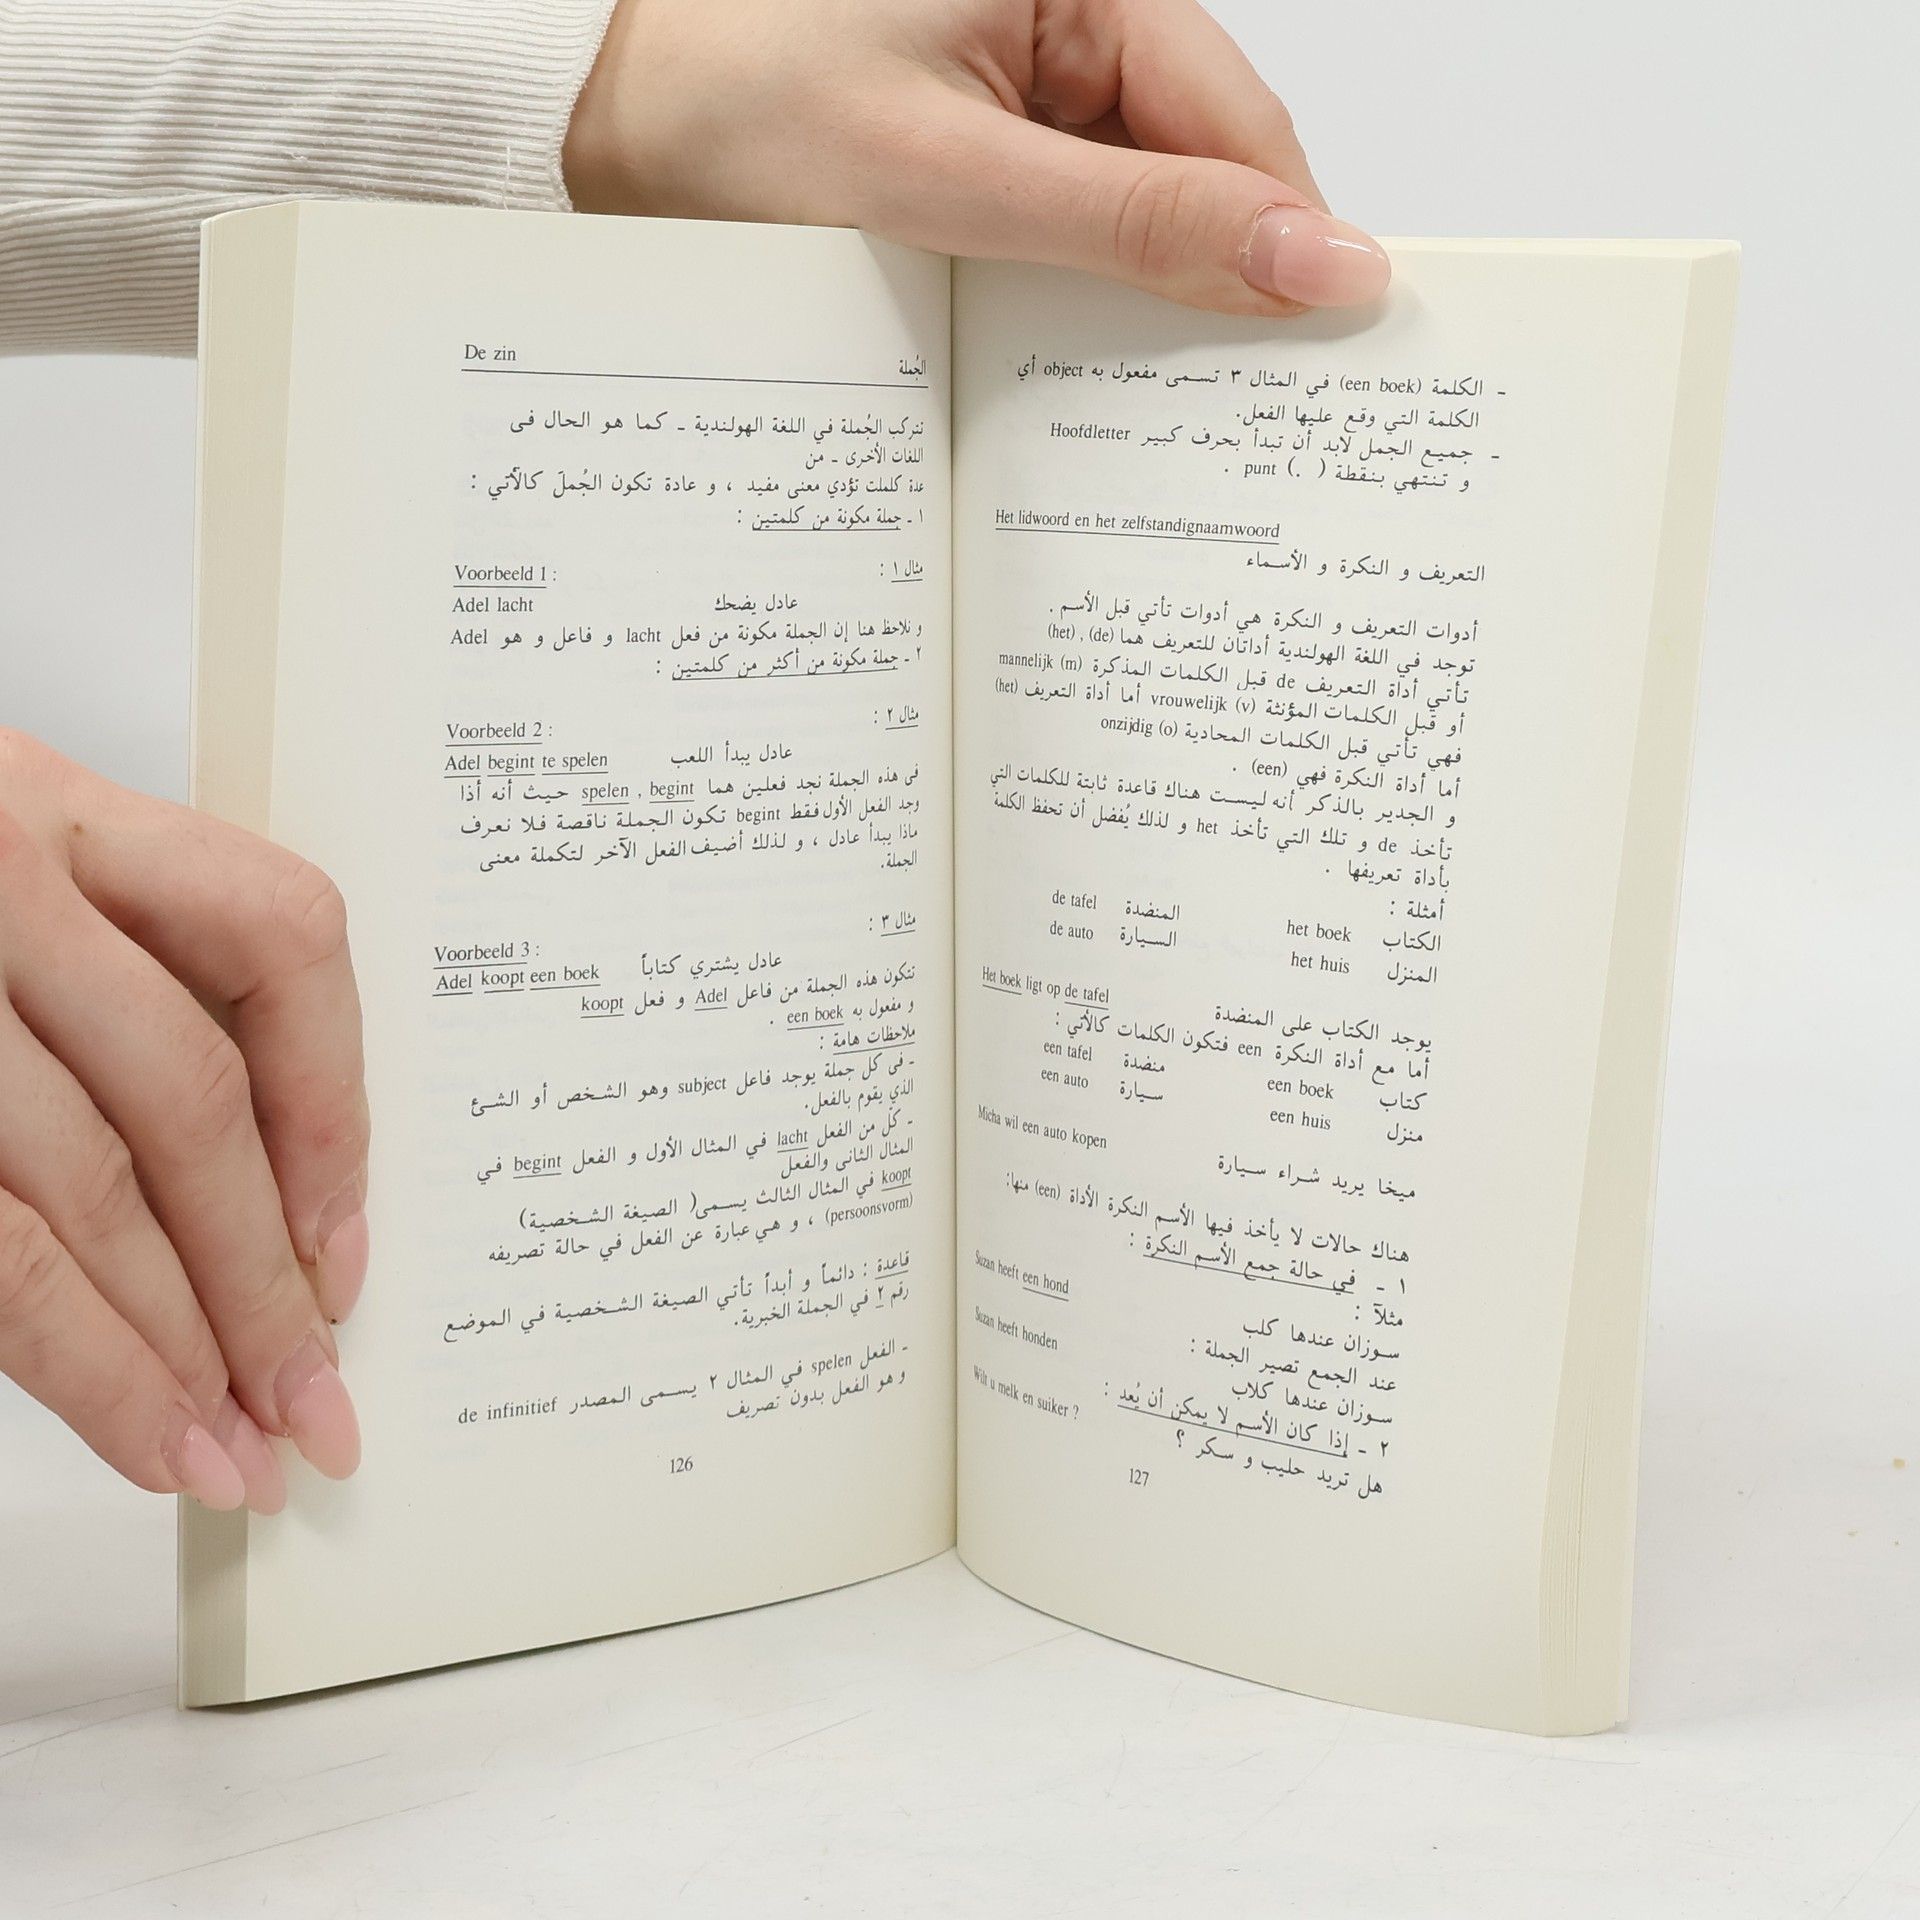 De zin الجُملة
تتركب الجُملة في اللغة الهولندية ـ كما هو الحال فى
اللغات الأخرى ـ من
عدة كلملت تؤدي معنى مفيد ، و عادة تكون الجُملَ كالأتي :
١ ـ جملة مكونة من كلمتين :
Voorbeeld 1 : مثال ١ :
Adel lacht عادل يضحك
و نلاحظ هنا إن الجملة مكونة من فعل lacht و فاعل و هو Adel
٢ ـ جملة مكونة من أكثر من كلمتين :
Voorbeeld 2 : مثال ٢ :
Adel begint te spelen عادل يبدأ اللعب
فى هذه الجملة نجد فعلين هما spelen , begint حيث أنه أذا
وجد الفعل الأول فقط begint تكون الجملة ناقصة فلا نعرف
ماذا يبدأ عادل ، و لذلك أضيف الفعل الآخر لتكملة معنى
الجملة.
Voorbeeld 3 : مثال ٣ :
Adel koopt een boek عادل يشتري كتاباً
تتكون هذه الجملة من فاعل Adel و فعل koopt
و مفعول به een boek .
ملاحظات هامة :
ـ فى كل جملة يوجد فاعل subject وهو الشخص أو الشئ
الذي يقوم بالفعل.
ـ كلّ من الفعل lacht في المثال الأول و الفعل begint في
المثال الثانى والفعل
koopt في المثال الثالث يسمى( الصيغة الشخصية)
(persoonsvorm) ، و هي عبارة عن الفعل في حالة تصريفه
قاعدة : دائماً و أبداً تأتي الصيغة الشخصية في الموضع
رقم ٢ في الجملة الخبرية.
ـ الفعل spelen في المثال ٢ يسمى المصدر de infinitief
و هو الفعل بدون تصريف
126
ـ الكلمة (een boek) في المثال ٣ تسمى مفعول به object أي
الكلمة التي وقع عليها الفعل.
ـ جميع الجمل لابد أن تبدأ بحرف كبير Hoofdletter
و تنتهي بنقطة ( . ) punt .
Het lidwoord en het zelfstandignaamwoord
التعريف و النكرة و الأسماء
أدوات التعريف و النكرة هي أدوات تأتي قبل الأسم .
توجد في اللغة الهولندية أداتان للتعريف هما (de) , (het)
تأتي أداة التعريف de قبل الكلمات المذكرة mannelijk (m)
أو قبل الكلمات المؤنثة vrouwelijk (v) أما أداة التعريف (het)
فهي تأتي قبل الكلمات المحادية onzijdig (o)
أما أداة النكرة فهي (een) .
و الجدير بالذكر أنه ليست هناك قاعدة ثابتة للكلمات التي
تأخذ de و تلك التي تأخذ het و لذلك يُفضل أن تحفظ الكلمة
بأداة تعريفها .
أمثلة :
الكتاب het boek المنضدة de tafel
المنزل het huis السيارة de auto
Het boek ligt op de tafel
يوجد الكتاب على المنضدة
أما مع أداة النكرة een فتكون الكلمات كالأتي :
كتاب een boek منضدة een tafel
منزل een huis سيارة een auto
Micha wil een auto kopen
ميخا يريد شراء سيارة
هناك حالات لا يأخذ فيها الأسم النكرة الأداة (een) منها:
١ ـ في حالة جمع الأسم النكرة :
مثلاً :
سوزان عندها كلب Suzan heeft een hond
عند الجمع تصير الجملة :
سوزان عندها كلاب Suzan heeft honden
٢ ـ إذا كان الأسم لا يمكن أن يُعد :
هل تريد حليب و سكر ؟ Wilt u melk en suiker ?
127